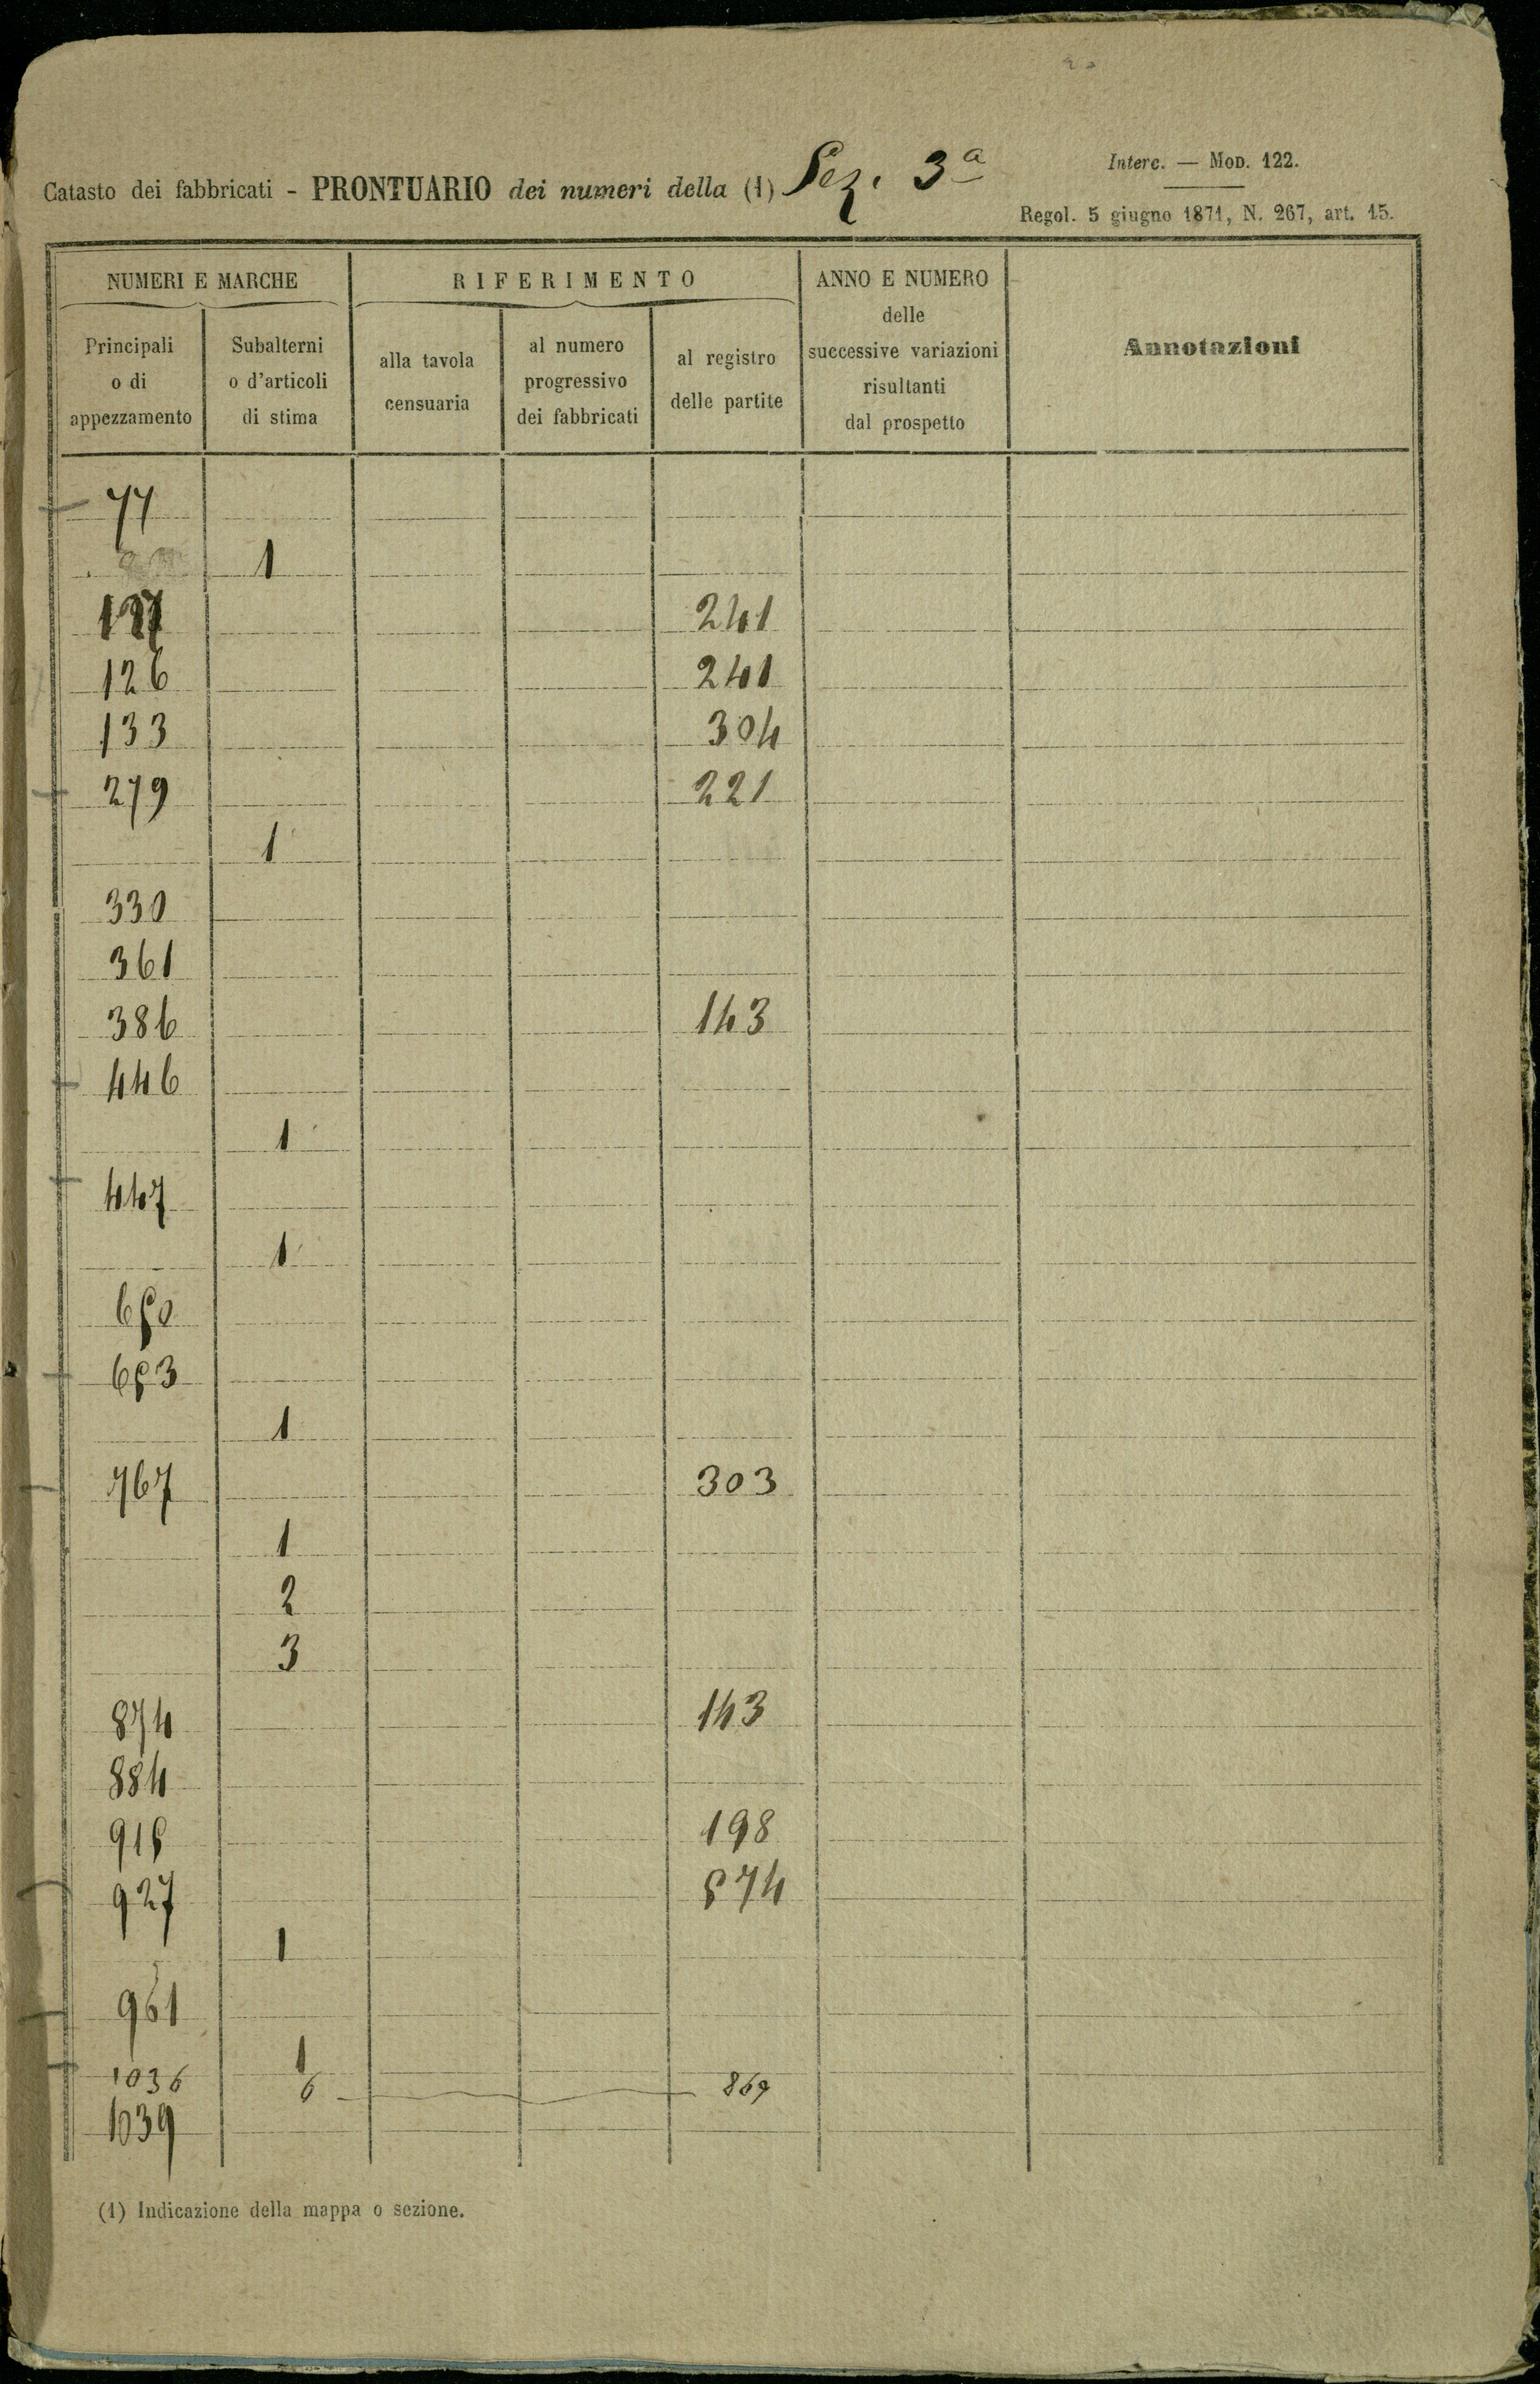 Catasto dei fabbricati - PRONTUARIO dei numeri della (1) Sez. 3ª
Interc. — MOD. 122.
Regol. 5 giugno 1871, N. 267, art. 15.
NUMERI E MARCHE
RIFERIMENTO
ANNO E NUMERO
delle
successive variazioni
risultanti
dal prospetto
Annotazioni
Principali
o di
appezzamento
Subalterni
o d'articoli
di stima
alla tavola
censuaria
al numero
progressivo
dei fabbricati
al registro
delle partite
77
1
241
126 241
133 304
279 221
1
330
361
386 143
446
1
447
1
650
653
1
767 303
1
2
3
874 143
884
915 198
927 574
1
961
1
1036 6 869
1039
(1) Indicazione della mappa o sezione.